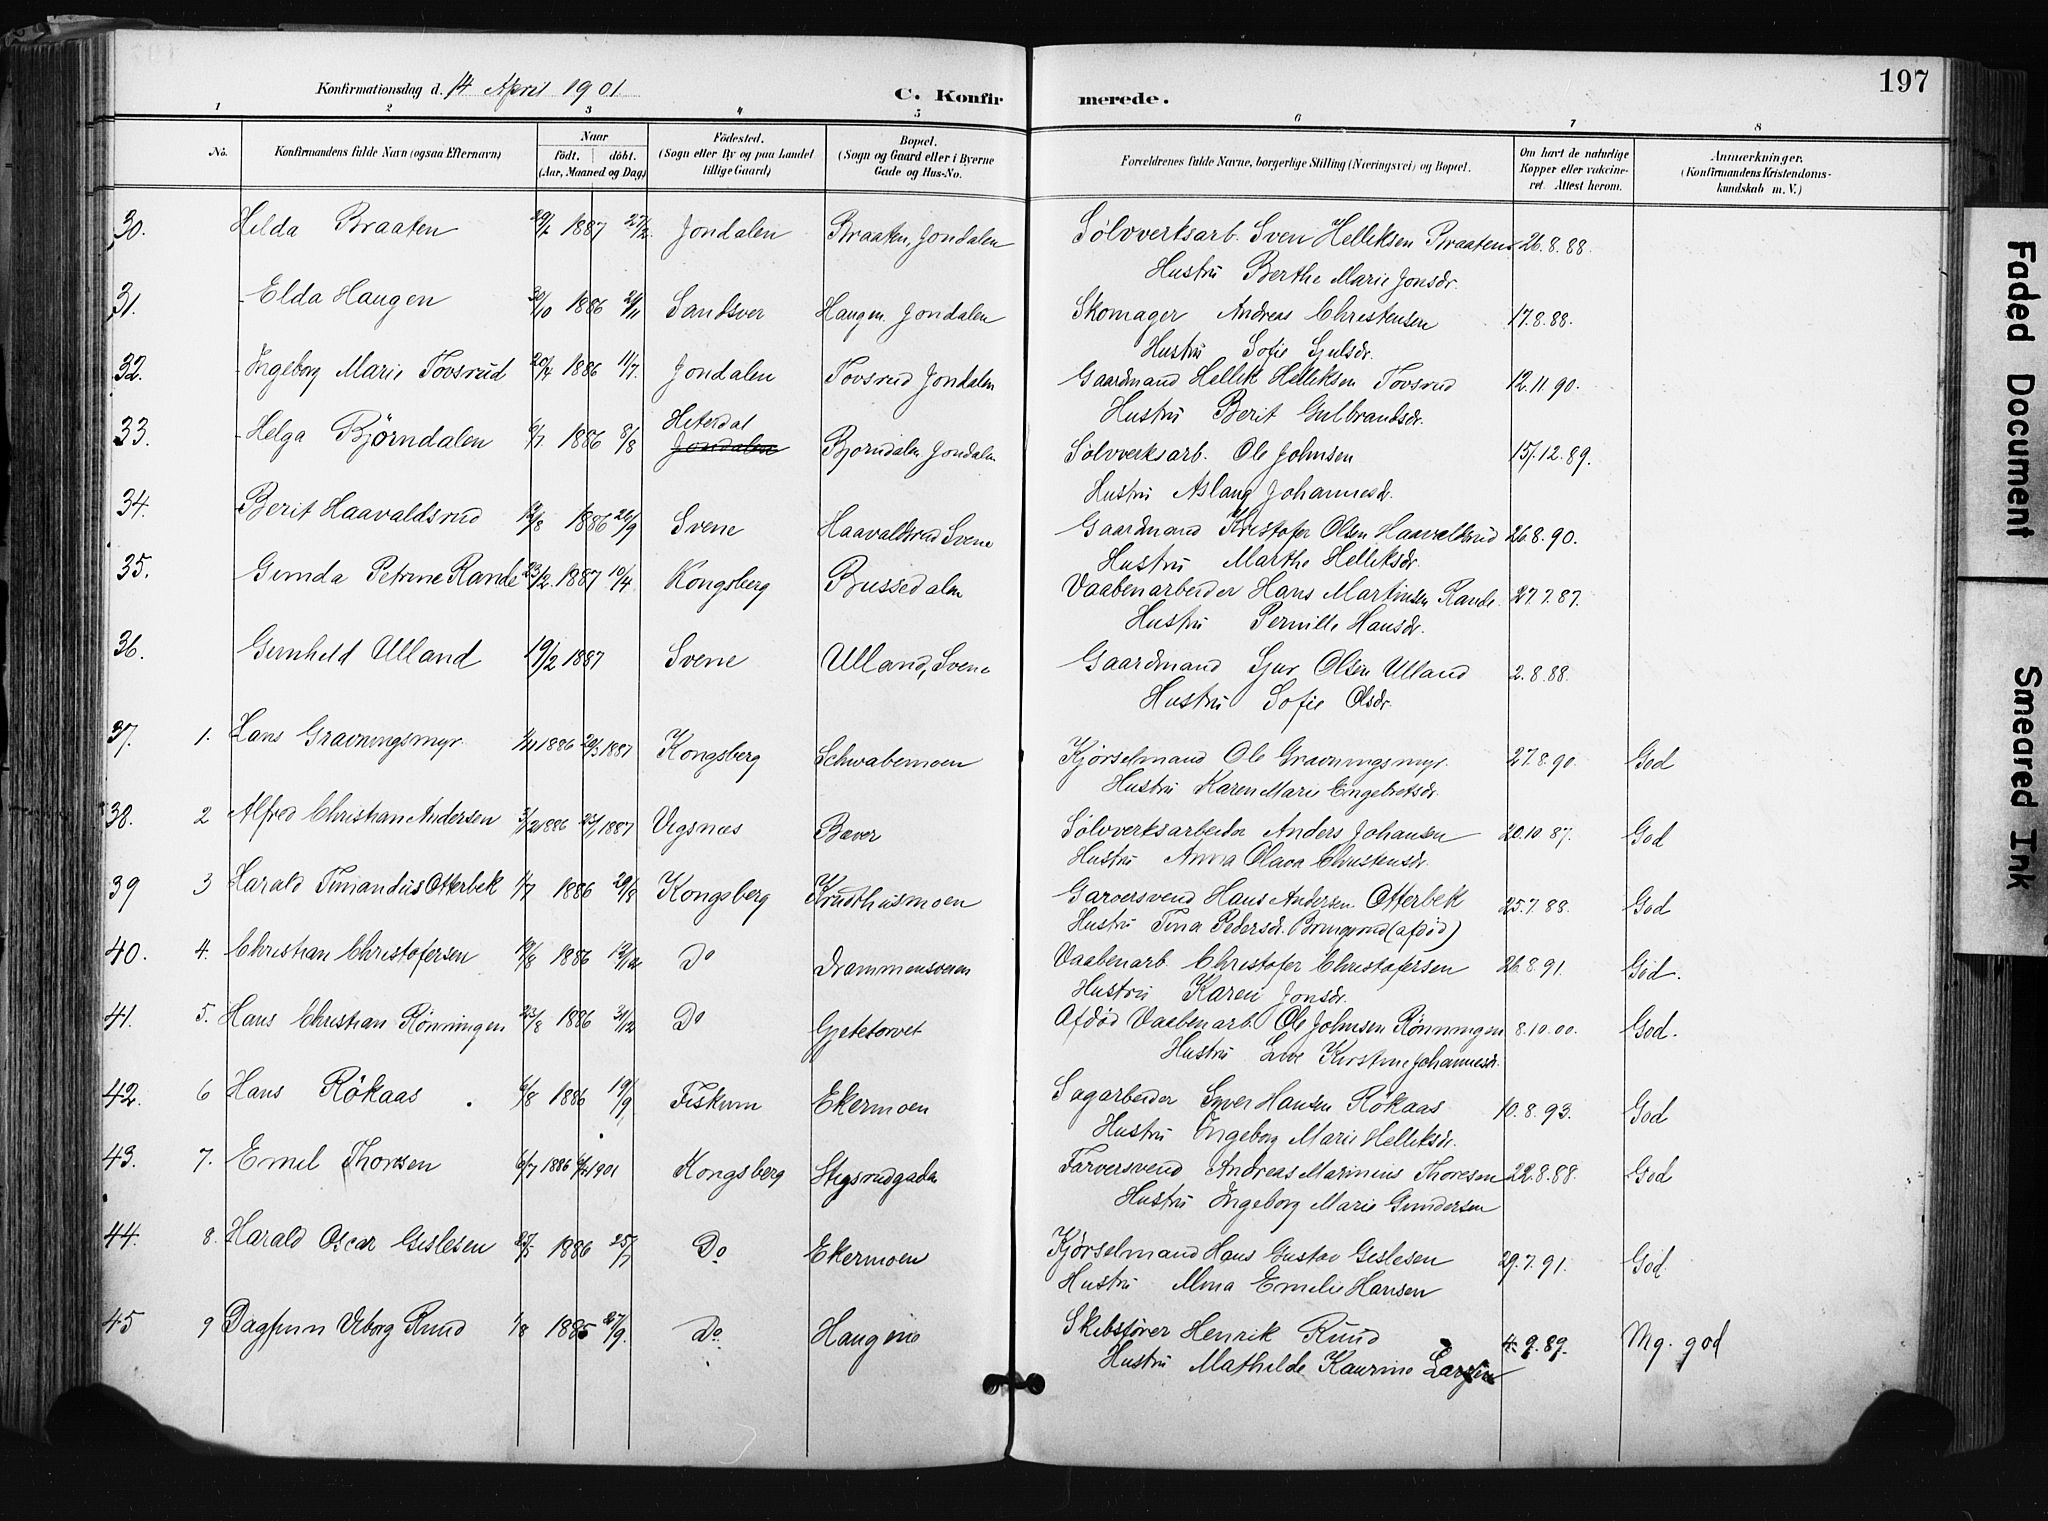 197
Konfirmationsdag d. 14 April 1901
C. Konfirmerede.
1 2 3 4 5 6 7 8
No. Konfirmandens fulde Navn (ogsaa Efternavn) Naar født. døbt. (Aar, Maaned og Dag) Fødested. (Sogn eller By og paa Landet tillige Gaard) Bopæl. (Sogn og Gaard eller i Byerne Gade og Hus-No. Forældrenes fulde Navne, borgerlige Stilling (Næringsvei) og Bopæl. Om havt de naturlige Kopper eller vakcineret. Attest herom. Anmærkninger. (Konfirmandens Kristendomskundskab m. V.)
30. Hilda Braaten 1887 27/2 Jondalen Braaten, Jondalen Sølvverksarb. Sven Helliksen Braaten 26.8.88.
Hustru Berthe Marie Jonsdr.
31. Elda Haugen 30/10 1886 21/11 Sandsver Haugen Jondalen Skomager Andreas Christensen 17.8.88.
Hustru Sofie Sjulsdr.
32. Ingeborg Marie Tovsrud 20/4 1886 11/7. Jondalen Tovsrud Jondalen Gaardmand Hellik Helliksen Tovsrud 12.11.90.
Hustru Berit Gulbrandsdr.
33. Helga Björndalen 6/7 1886 8/8 Hiterdal Jondalen Bjorndalen Jondalen Sølvverksarb. Ole Johnsen 15.12.89.
Hustru Aslaug Johannesdr.
34. Berit Haavaldsrud 12/8 1886 26/9 Svene Haavaldsrud Svene Gaardmand Kristofer Olsen Haavaldsrud 26.8.90.
Hustru Marthe Helliksdr.
35. Gunda Petrine Rande 23/2. 1887 10/4 Kongsberg Bussedalen Vaabenarbeider Hans Martinsen Rande 27.7.87.
Hustru Pernille Hansdr.
36. Gunhild Ulland 19/2 1887 Svene Ulland, Svene Gaardmand Sjur Olsen Ulland 2.8.88.
Hustru Sofie Olsdr.
37. 1. Hans Gravningsmyr 1886 20/3 1887 Kongsberg Schwabemoen Kjörselmand Ole Gravningsmyr. 27.8.90. God
Hustru Karen Marie Engebretsdr.
38. 2 Alfred Christian Andersen 3/12 1886 23/1 1887 Vigsnæs Bæver Sølvverksarbeider Anders Johansen 20.10.87. God
Hustru Anna Olava Christensdr.
39 3 Harald Timandus Otterbek 1/7 1886 29/8 Kongsberg Krudthusmoen Garversvend Hans Andersen Otterbek 25.7.88. God
Hustru Tina Pedersdr. (afdød)
40. 4. Christian Christofersen 19/8 1886 12/12 Do Drammensveien Vaabenarb. Christofer Christofersen 26.8.91. God.
Hustru Karen Jonsdr.
41. 5. Hans Christian Rönningen 23/8 1886 31/12 Do Gjetetorvet Afdød Vaabenarb. Ole Johnsen Rönningen 8.10.00. God.
Hustru Kirstine Johannesdr.
42. 6 Hans Rökaas 6/8 1886 19/9 Fiskum Ekermoen Sagarbeider Iver Hansen Rökaas 10.8.93. God
Hustru Ingeborg Marie Helliksdr.
43. 7. Emil Thoresen 6/7 1886 1901 Kongsberg Stigsrudgaden Farversvend Andreas Marinius Thoresen 22.8.88. God
Hustru Ingeborg Marie Gundersen
44. 8. Harald Oscar Gislesen 1886 25/7 Do. Ekermoen Kjörselmand Hans Gustav Gislesen 29.7.91. God.
Hustru Alma Emelie Hansen
45 9 Dagfinn Viborg Ruud 1/8 1885 27/9. Do. Haugine Skibsfører Henrik Ruud 4.9.89. Mg. god
Hustru Mathilde Kaurine Larsen
Faded Document
Smeared Ink